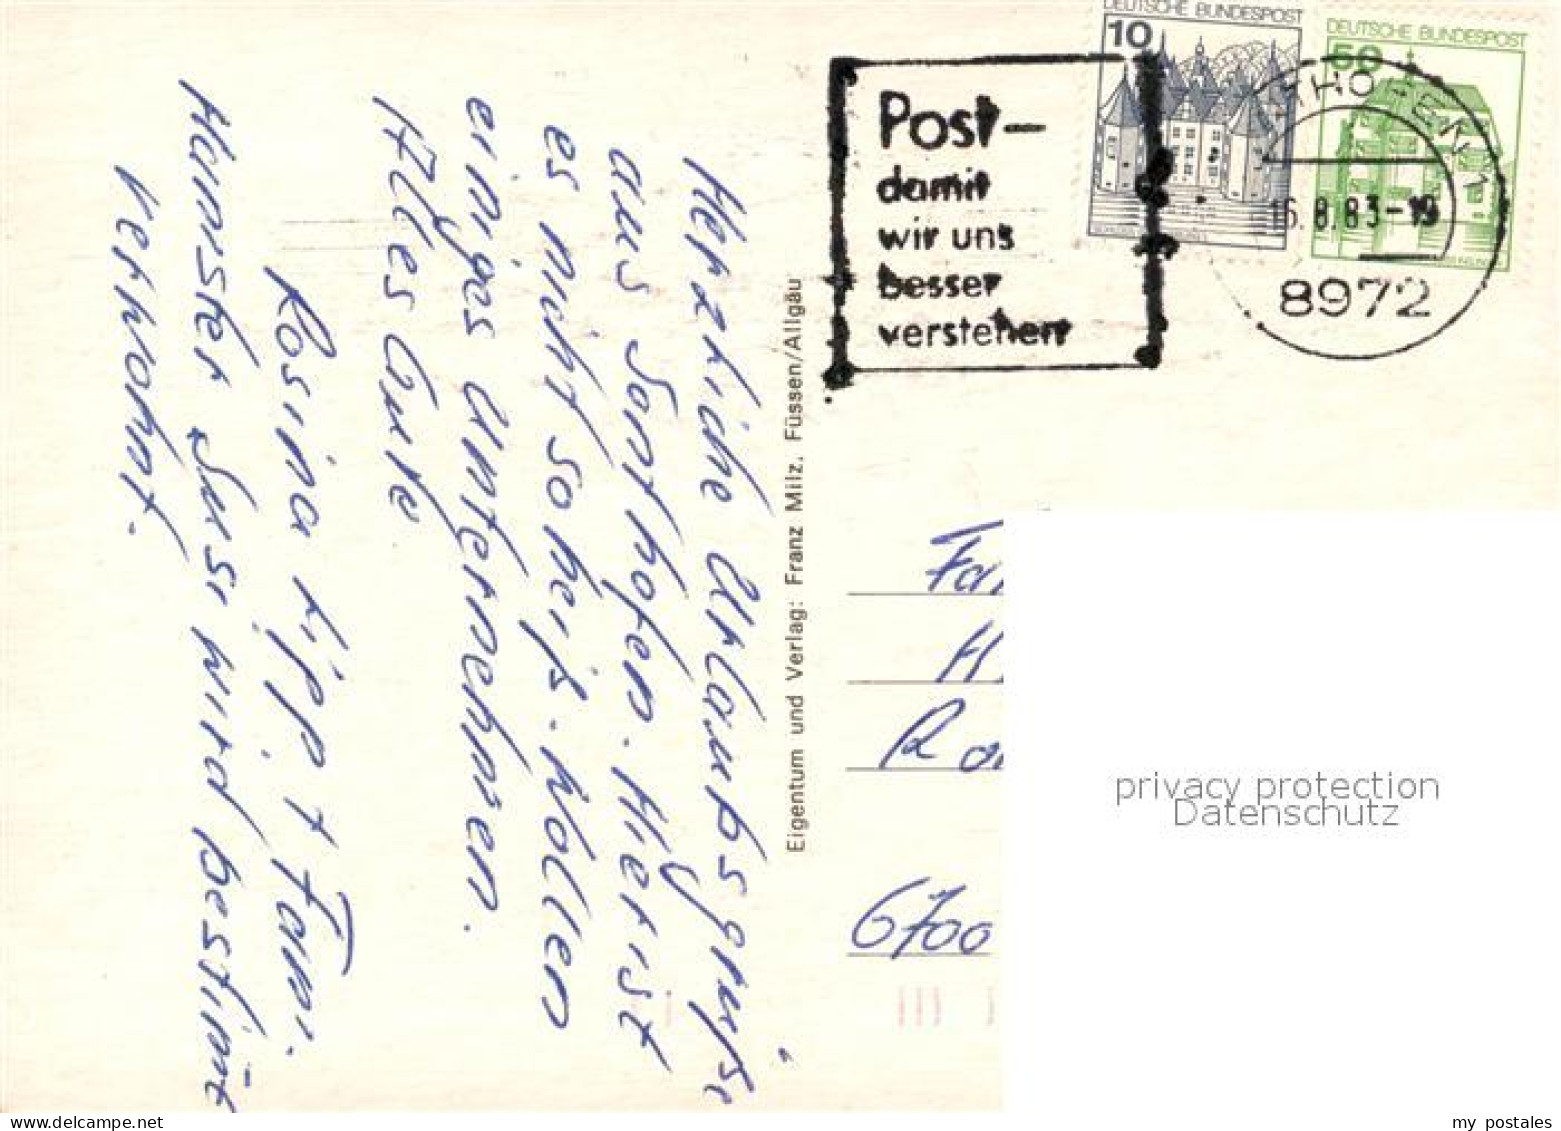 DEUTSCHE BUNDESPOST
10
DEUTSCHE BUNDESPOST
50
Post-
damit
wir uns
besser
verstehen
16.8.83-19
8972
Herzliche Urlaubsgrüße
aus Sonthofen. Hier ist
es nicht so heiß. Wollen
einiges unternehmen.
Alles Gute
Rosina Lipp + Fam.
Hamster Susi wird bestimt
verwöhnt.
Eigentum und Verlag: Franz Milz, Füssen/Allgäu
Fam
H
6700
privacy protection
Datenschutz
my postales